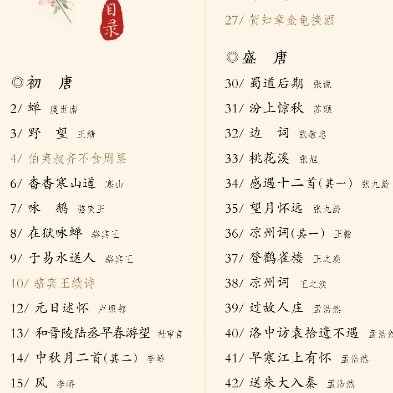 目录
◎初 唐
2/ 蝉 虞世南
3/ 野 望 王绩
4/ 伯夷叔齐不食周粟
6/ 杳杳寒山道 寒山
7/ 咏 鹅 骆宾王
8/ 在狱咏蝉 骆宾王
9/ 于易水送人 骆宾王
10/ 骆宾王续诗
12/ 元日述怀 卢照邻
13/ 和晋陵陆丞早春游望 杜审言
14/ 中秋月二首(其二) 李峤
15/ 风 李峤
27/ 贺知章金龟换酒
◎盛 唐
30/ 蜀道后期 张说
31/ 汾上惊秋 苏颋
32/ 边 词 张敬忠
33/ 桃花溪 张旭
34/ 感遇十二首(其一) 张九龄
35/ 望月怀远 张九龄
36/ 凉州词(其一) 王翰
37/ 登鹳雀楼 王之涣
38/ 凉州词 王之涣
39/ 过故人庄 孟浩然
40/ 洛中访袁拾遗不遇 孟浩然
41/ 早寒江上有怀 孟浩然
42/ 送朱大入秦 孟浩然